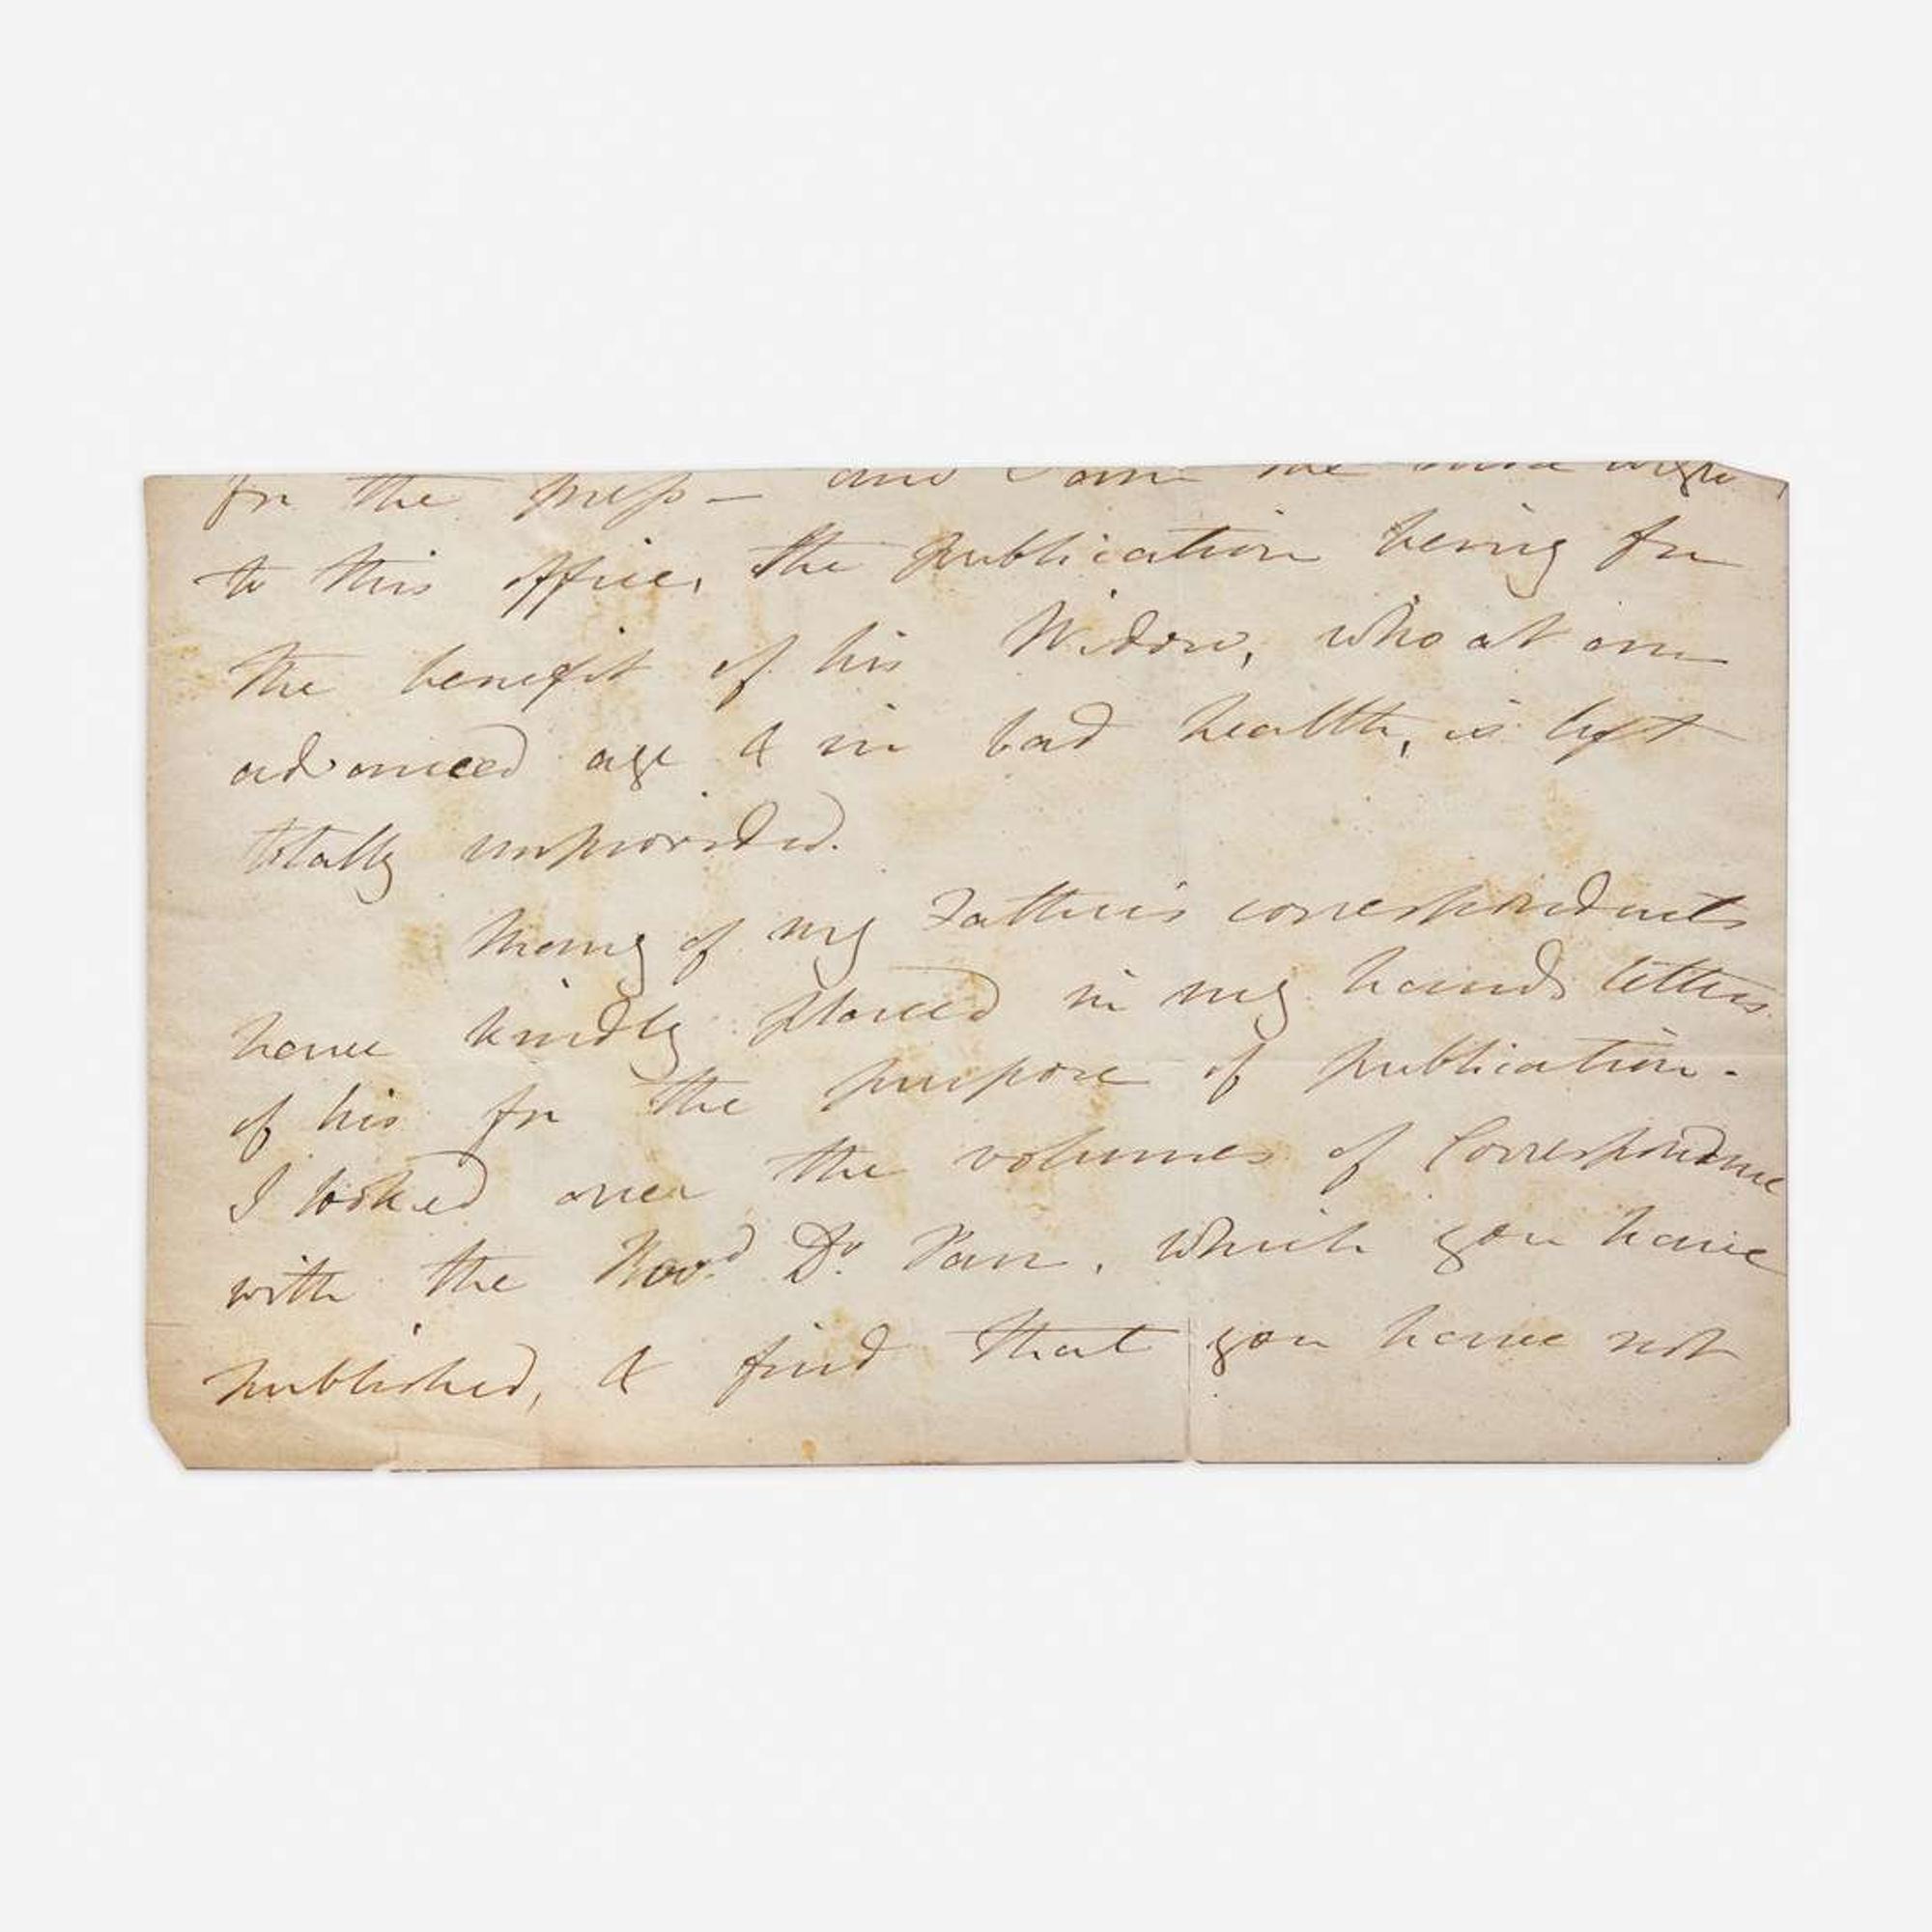 for the press — and I am the more urgent
to this office, the publication being for
the benefit of his Widow, who at an
advanced age & in bad health, is left
totally unprovided.
Many of my Father's correspondents
have kindly placed in my hands letters
of his for the purpose of publication -
I looked over the volumes of Correspondence
with the Revd Dr. Parr, which you have
published, & find that you have not